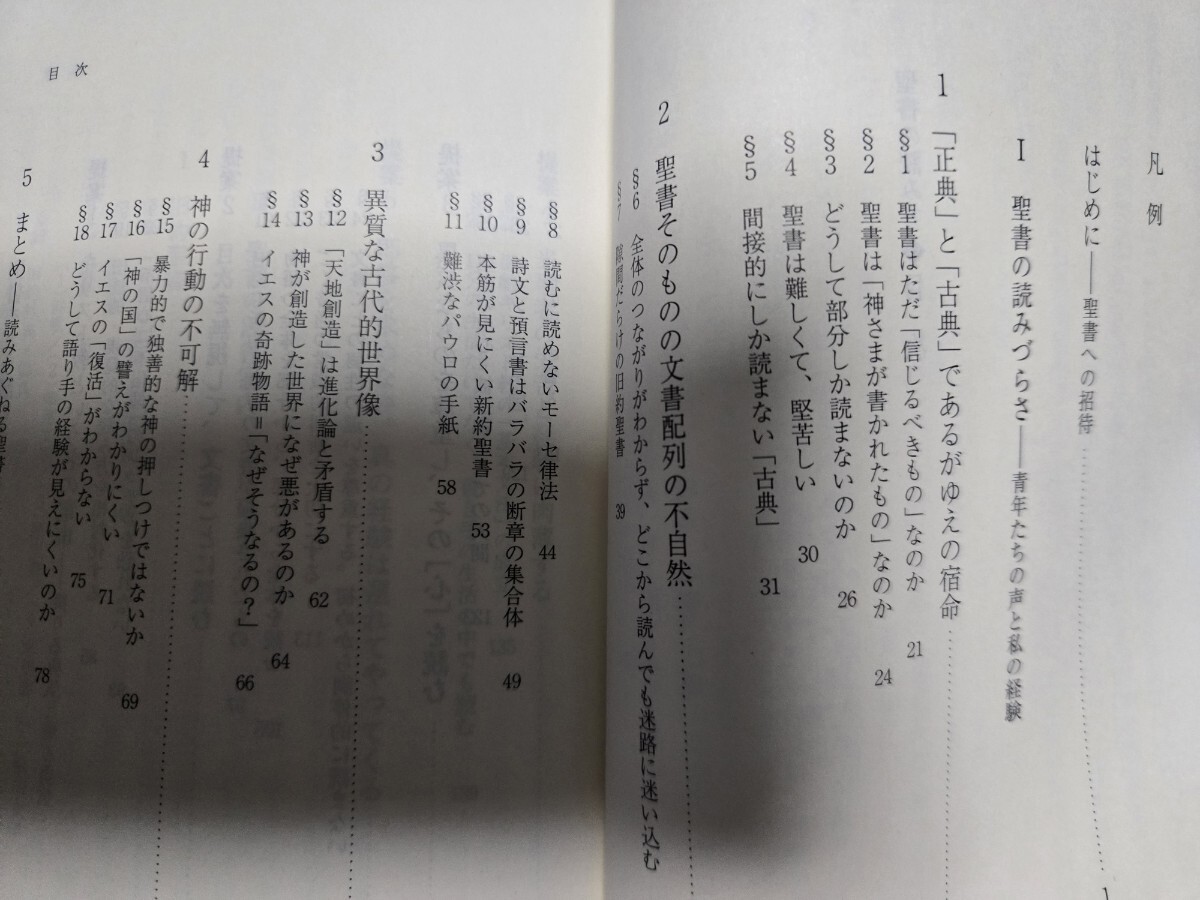 凡例
はじめに――聖書への招待
I 聖書の読みづらさ――青年たちの声と私の経験
1 「正典」と「古典」であるがゆえの宿命
§1 聖書はただ「信じるべきもの」なのか 21
§2 聖書は「神さまが書かれたもの」なのか 24
§3 どうして部分しか読まないのか 26
§4 聖書は難しくて、堅苦しい 30
§5 間接的にしか読まない「古典」 31
2 聖書そのものの文書配列の不自然
§6 全体のつながりがわからず、どこから読んでも迷路に迷い込む
§7 隙間だらけの旧約聖書 39
目次
§8 読むに読めないモーセ律法 44
§9 詩文と預言書はバラバラの断章の集合体 49
§10 本筋が見にくい新約聖書 53
§11 難渋なパウロの手紙 58
3 異質な古代的世界像
§12 「天地創造」は進化論と矛盾する 62
§13 神が創造した世界になぜ悪があるのか 64
§14 イエスの奇跡物語=「なぜそうなるの?」 66
4 神の行動の不可解
§15 暴力的で独善的な神の押しつけではないか 69
§16 「神の国」の譬えがわかりにくい 71
§17 イエスの「復活」がわからない 75
§18 どうして語り手の経験が見えにくいのか 78
5 まとめ――読みあぐねる聖書